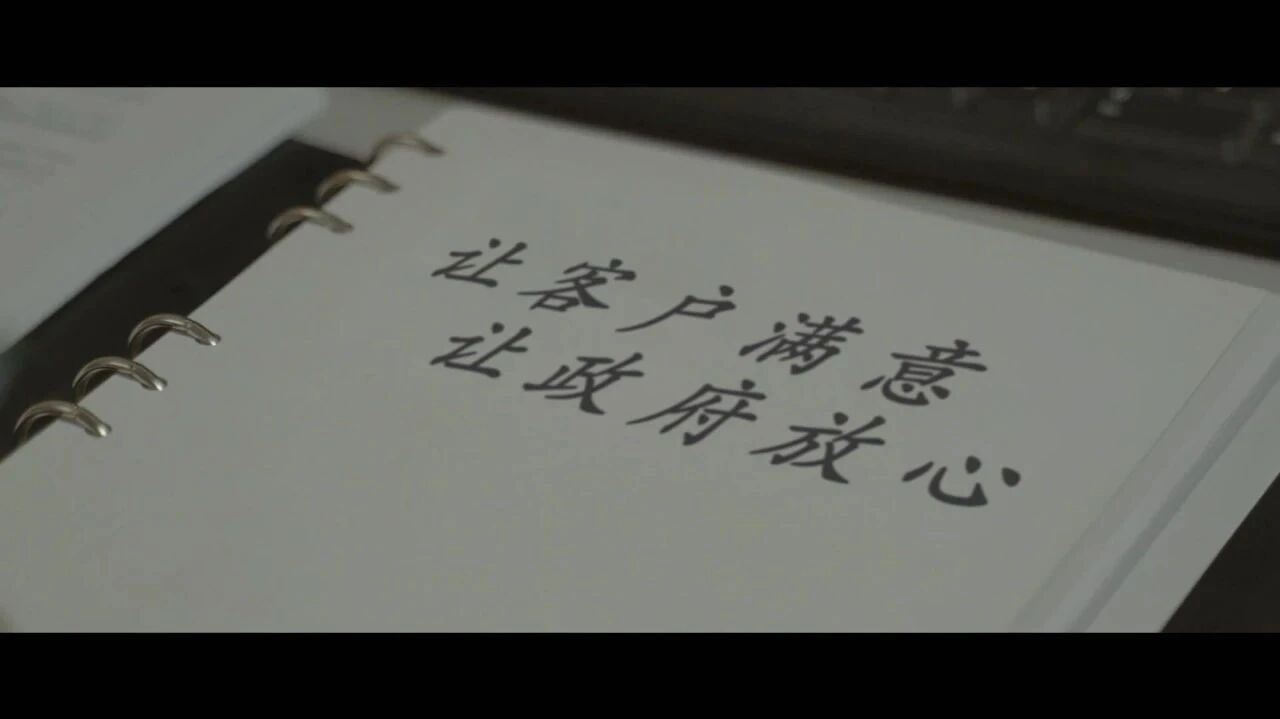 让客户满意
让政府放心